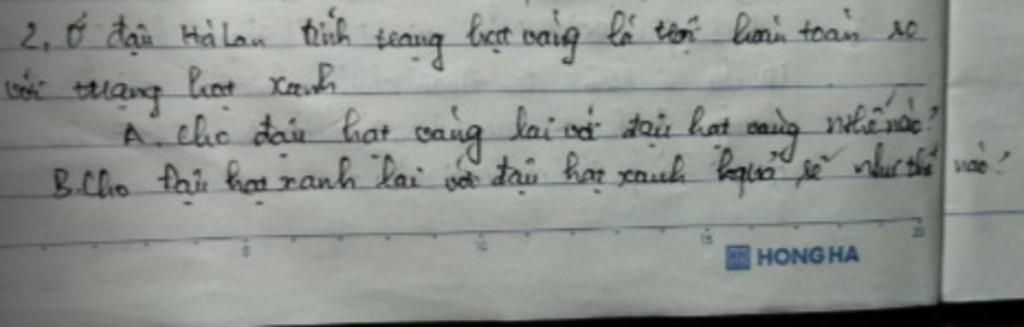 2, Ở đậu Hà Lan tính trạng hạt vàng là trội hoàn toàn so
với trạng hạt xanh
A. Cho đậu hạt vàng lai với đậu hạt vàng như thế nào?
B. Cho đậu hạt xanh lai với đậu hạt xanh kquả sẽ như thế nào?
5 10 15 20
HH HONG HA